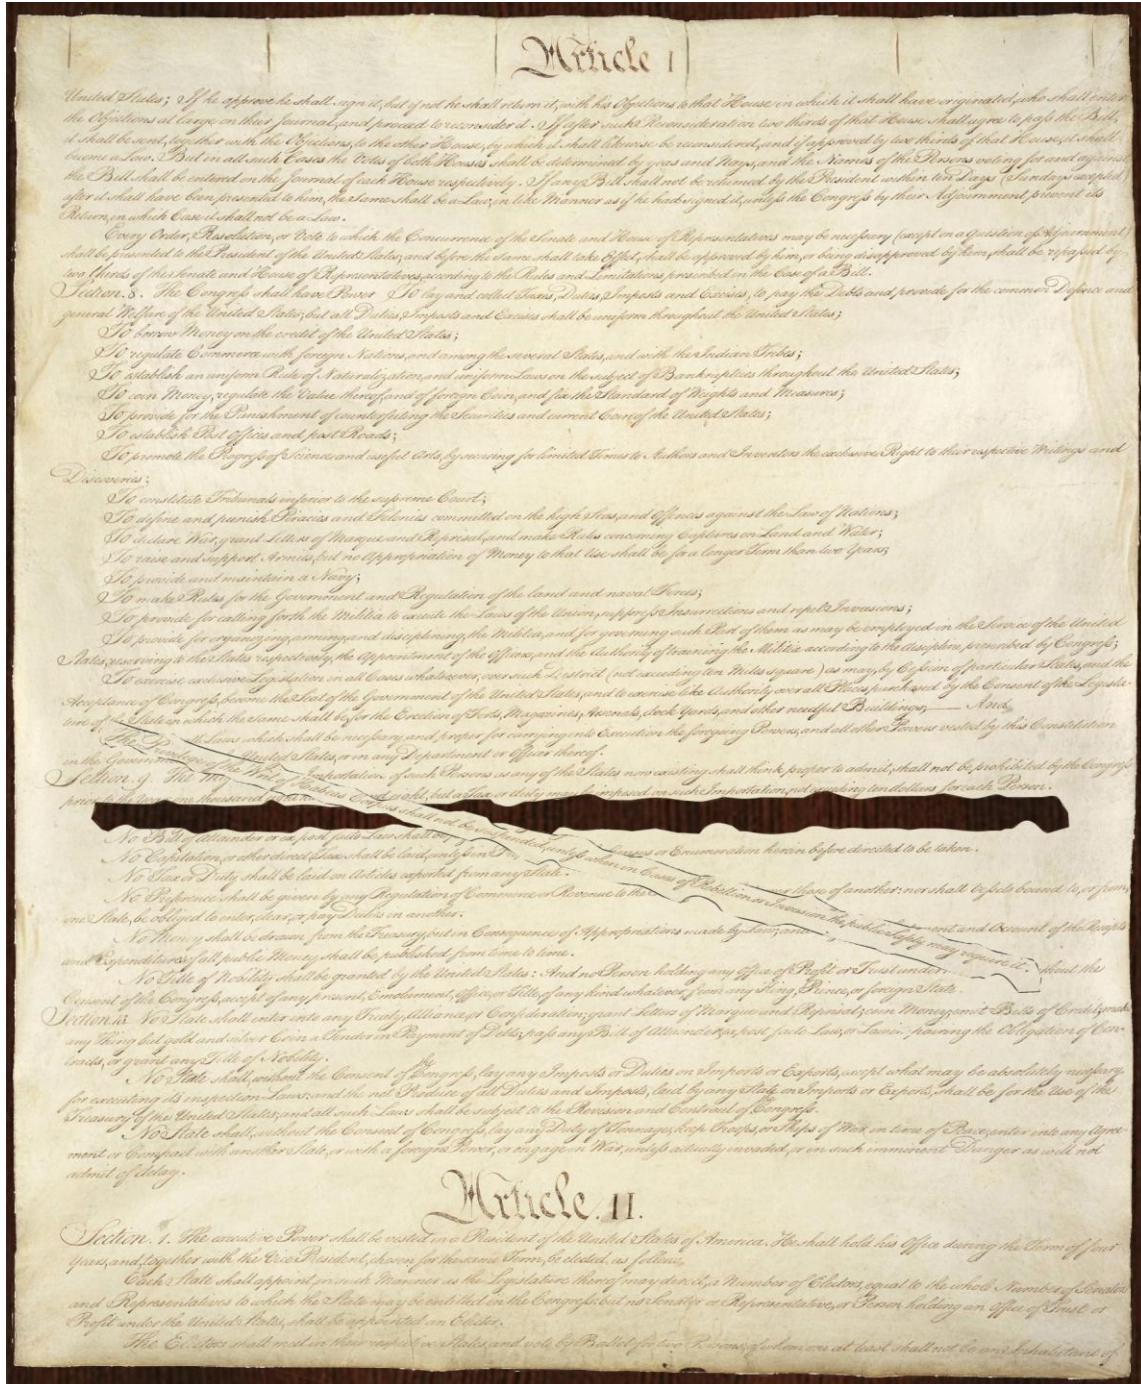 Article 1
United States; If he approve he shall sign it, but if not he shall return it, with his Objections to that House in which it shall have originated, who shall enter
the Objections at large on their Journal, and proceed to reconsider it. If after such Reconsideration two thirds of that House shall agree to pass the Bill,
it shall be sent, together with the Objections, to the other House, by which it shall likewise be reconsidered, and if approved by two thirds of that House, it shall
become a Law. But in all such Cases the Votes of both Houses shall be determined by yeas and Nays, and the Names of the Persons voting for and against
the Bill shall be entered on the Journal of each House respectively. If any Bill shall not be returned by the President within ten Days (Sundays excepted)
after it shall have been presented to him, the Same shall be a Law, in like Manner as if he had signed it, unless the Congress by their Adjournment prevent its
Return, in which Case it shall not be a Law.
Every Order, Resolution, or Vote to which the Concurrence of the Senate and House of Representatives may be necessary (except on a question of Adjournment)
shall be presented to the President of the United States; and before the Same shall take Effect, shall be approved by him, or being disapproved by him, shall be repassed by
two thirds of the Senate and House of Representatives, according to the Rules and Limitations prescribed in the Case of a Bill.
Section. 8. The Congress shall have Power To lay and collect Taxes, Duties, Imposts and Excises, to pay the Debts and provide for the common Defence and
general Welfare of the United States; but all Duties, Imposts and Excises shall be uniform throughout the United States;
To borrow Money on the credit of the United States;
To regulate Commerce with foreign Nations, and among the several States, and with the Indian Tribes;
To establish an uniform Rule of Naturalization, and uniform Laws on the subject of Bankruptcies throughout the United States;
To coin Money, regulate the Value thereof, and of foreign Coin, and fix the Standard of Weights and Measures;
To provide for the Punishment of counterfeiting the Securities and current Coin of the United States;
To establish Post Offices and post Roads;
To promote the Progress of Science and useful Arts, by securing for limited Times to Authors and Inventors the exclusive Right to their respective Writings and
Discoveries;
To constitute Tribunals inferior to the supreme Court;
To define and punish Piracies and Felonies committed on the high Seas, and Offences against the Law of Nations;
To declare War, grant Letters of Marque and Reprisal, and make Rules concerning Captures on Land and Water;
To raise and support Armies, but no Appropriation of Money to that Use shall be for a longer Term than two Years;
To provide and maintain a Navy;
To make Rules for the Government and Regulation of the land and naval Forces;
To provide for calling forth the Militia to execute the Laws of the Union, suppress Insurrections and repel Invasions;
To provide for organizing, arming, and disciplining, the Militia, and for governing such Part of them as may be employed in the Service of the United
States, reserving to the States respectively, the Appointment of the Officers, and the Authority of training the Militia according to the discipline prescribed by Congress;
To exercise exclusive Legislation in all Cases whatsoever, over such District (not exceeding ten Miles square) as may, by Cession of particular States, and the
Acceptance of Congress, become the Seat of the Government of the United States, and to exercise like Authority over all Places purchased by the Consent of the Legisla-
ture of State in which the Same shall be, for the Erection of Forts, Magazines, Arsenals, dock-Yards, and other needful Buildings;—And
Laws which shall be necessary and proper for carrying into Execution the foregoing Powers, and all other Powers vested by this Constitution
in the Government United States, or in any Department or Officer thereof.
Section. 9. The Importation of such Persons as any of the States now existing shall think proper to admit, shall not be prohibited by the Congress
prior to the Year one thousand eight, but a Tax or duty may be imposed on such Importation, not exceeding ten dollars for each Person.
The Privilege of the Writ of Habeas Corpus shall not be suspended, unless when in Cases of Rebellion or Invasion the public Safety may require it.
No Bill of Attainder or ex post facto Law shall be
No Capitation, or other direct, Tax shall be laid, unless in Census or Enumeration herein before directed to be taken.
No Tax or Duty shall be laid on Articles exported from any State.
No Preference shall be given by any Regulation of Commerce or Revenue to the over those of another: nor shall Vessels bound to, or from,
one State, be obliged to enter, clear, or pay Duties in another.
No Money shall be drawn from the Treasury, but in Consequence of Appropriations made by Law; and Account of the Receipts
and Expenditures of all public Money shall be published from time to time.
No Title of Nobility shall be granted by the United States: And no Person holding any Office of Profit or Trust under the
Consent of the Congress, accept of any present, Emolument, Office, or Title, of any kind whatever, from any King, Prince, or foreign State.
Section. 10. No State shall enter into any Treaty, Alliance, or Confederation; grant Letters of Marque and Reprisal; coin Money; emit Bills of Credit; make
any Thing but gold and silver Coin a Tender in Payment of Debts; pass any Bill of Attainder, ex post facto Law, or Law impairing the Obligation of Con-
tracts, or grant any Title of Nobility.
No State shall, without the Consent of the Congress, lay any Imposts or Duties on Imports or Exports, except what may be absolutely necessary
for executing its inspection Laws: and the net Produce of all Duties and Imposts, laid by any State on Imports or Exports, shall be for the Use of the
Treasury of the United States; and all such Laws shall be subject to the Revision and Controul of Congress.
No State shall, without the Consent of Congress, lay any Duty of Tonnage, keep Troops, or Ships of War in time of Peace, enter into any Agree-
ment or Compact with another State, or with a foreign Power, or engage in War, unless actually invaded, or in such imminent Danger as will not
admit of delay.
Article. II.
Section. 1. The executive Power shall be vested in a President of the United States of America. He shall hold his Office during the Term of four
Years, and, together with the Vice President, chosen for the same Term, be elected, as follows
Each State shall appoint, in such Manner as the Legislature thereof may direct, a Number of Electors, equal to the whole Number of Senators
and Representatives to which the State may be entitled in the Congress: but no Senator or Representative, or Person holding an Office of Trust or
Profit under the United States, shall be appointed an Elector.
The Electors shall meet in their respective States, and vote by Ballot for two Persons, of whom one at least shall not be an Inhabitant of